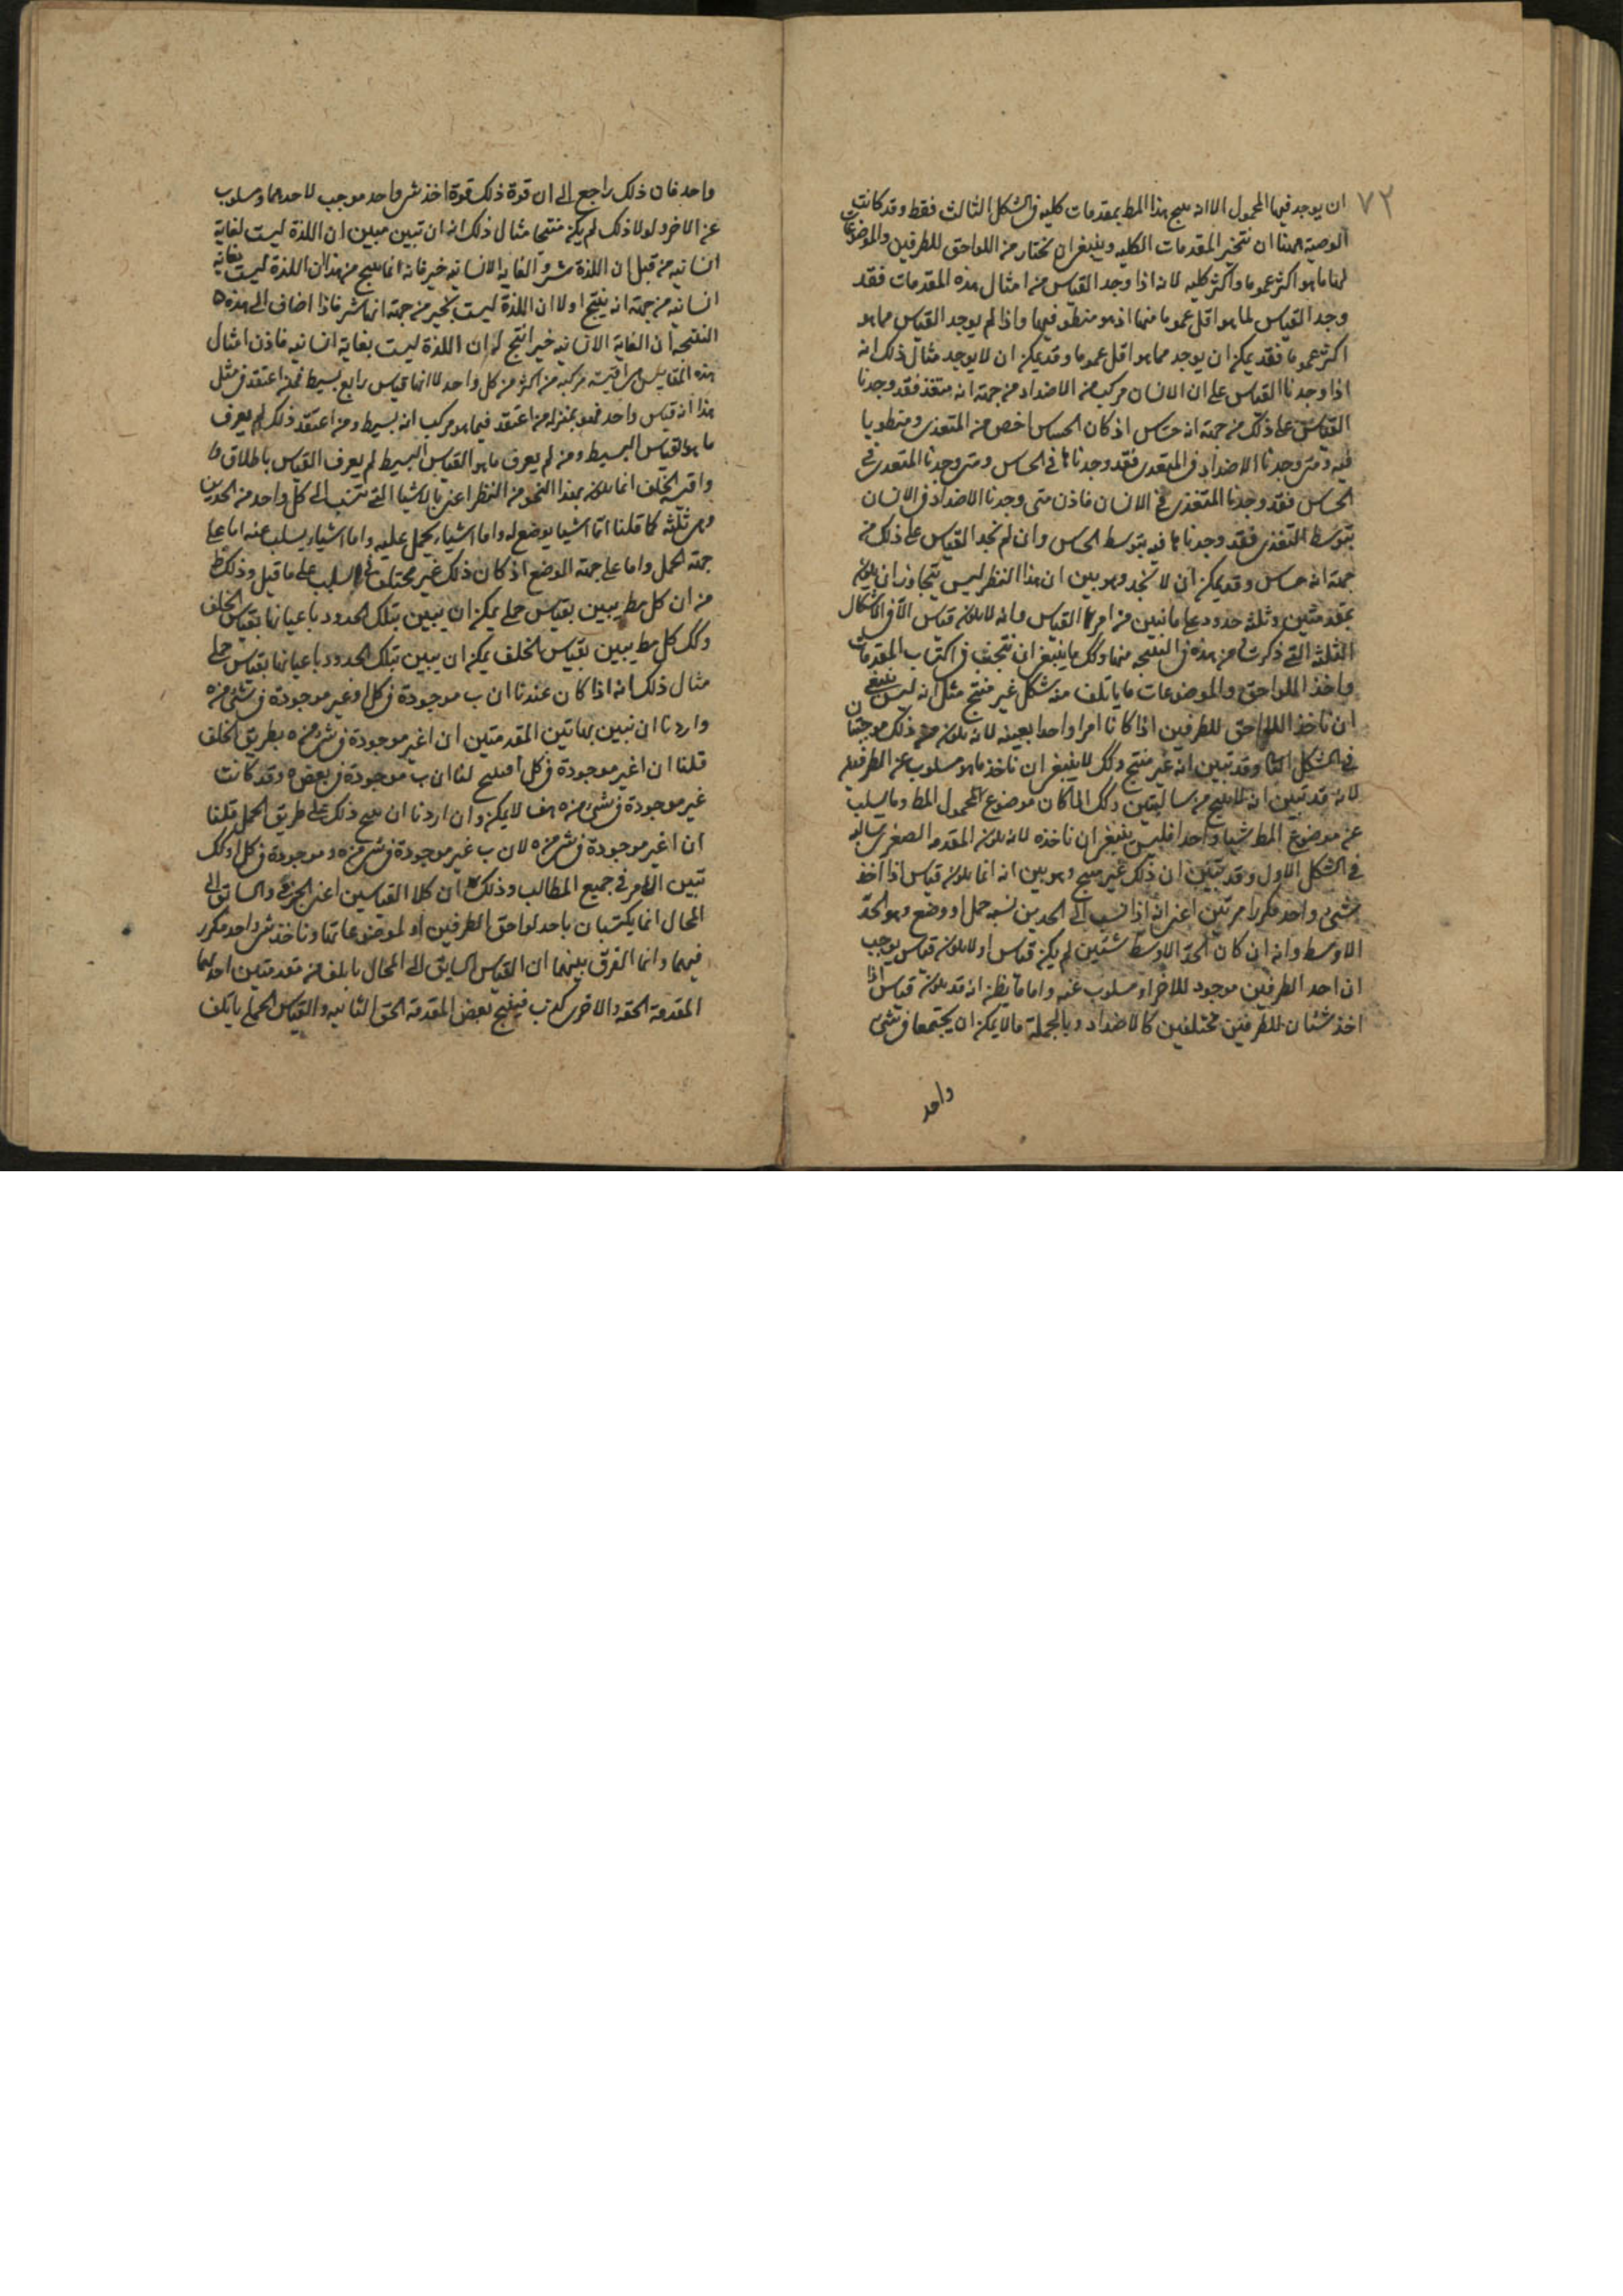 ٧٢
ان يوجد فيها المحمول الا انه ينتج هذا المط بمقدمات كليه فى الشكل الثالث فقط وقد كانت
الوصية ههنا ان نتخير المقدمات الكليه وينبغى ان نختار من اللواحق للطرفين والموضوعات
لهما ما هو اكثر عموما واكثر كليه لانه اذا وجد القياس من امثال هذه المقدمات فقد
وجد القياس لما هو اقل عموما منها اذ هو منطو فيها واذا لم يوجد القياس مما هو
اكثر عموما فقد يمكن ان يوجد مما هو اقل عموما وقد يمكن ان لا يوجد مثال ذلك انه
اذا وجدنا القياس على ان الانسان مركب من الاضداد من جهة انه متغذ فقد وجدنا
القياس على ذلك من جهة انه حساس اذ كان الحساس اخص من المتغذى ومنطويا
فيه ومتى وجدنا الاضداد فى المتغذى فقد وجدناها فى الحساس ومتى وجدنا المتغذى فى
الحساس فقد وجدنا المتغذى فى الانسان فاذن متى وجدنا الاضداد فى الانسان
بتوسط التغذى فقد وجدناها فيه بتوسط الحساس وان لم نجد القياس على ذلك من
جهة انه حساس وقد يمكن ان لا نجد وهو بين ان هذا النظر ليس يتجاوز ان يكون
بمقدمتين وثلثه حدود على ما تبين من امر القياس وانه لا يكون قياس الا فى الاشكال
الثلثة التى ذكرت من هذه فى النتيجه منها وكك ما ينبغى ان نتجنب فى اكتساب المقدمات
واخذ اللواحق والموضوعات ما ياتلف منه شكل غير منتج مثل انه ليس ينبغى
ان ناخذ اللواحق للطرفين اذا كانا امرا واحدا بعينه لانه يكون من ذلك موجبتان
فى الشكل الثا وقد تبين انه غير منتج وكك لا ينبغى ان ناخذ ما هو مسلوب عن الطرفين
لانه قد تبين انه لا ينتج من سالبتين وكك اذا كان موضوع المحمول المط وما يسلب
عن موضوع المط شيئا واحدا فليس ينبغى ان ناخذه لانه يكون المقدمه الصغرى سالبه
فى الشكل الاول وقد تبين ان ذلك غير منتج وهو بين انه انما يكون قياس اذا اخذ
شىء واحد مكررا مرتين اعنى انه اذا نسب الى الحدين نسبه حمل او وضع وهو الحد
الاوسط وانه ان كان الحد الاوسط شيئين لم يكن قياس اولا يكون قياس يوجب
ان احد الطرفين موجود للاخر او مسلوب عنه واما ما يظن انه قد يكون قياس اذا
اخذ شيئان للطرفين مختلفين كالاضداد وبالجملة ما لا يمكن ان يجتمعا فى شىء
واحد
واحد فان ذلك راجع الى ان قوة ذلك قوة اخذ شى واحد موجب لاحدهما ومسلوب
عن الاخر ولولا ذلك لم يكن منتجا مثال ذلك انه ان تبين مبين ان اللذة ليست لغاية
انسانيه من قبل ان اللذة شر والغاية الانسانيه خير فانه انما ينتج من هذا ان اللذة ليست بغاية
انسانيه من جهة انه ينتج اولا ان اللذة ليست بخير من جهة انها شر فاذا اضاف الى هذه
النتيجه ان الغاية الانسانيه خير انتج له ان اللذة ليست بغاية انسانيه فاذن امثال
هذه المقاييس مركبه من اكثر من كل واحد لا انها قياس رابع بسيط فمن اعتقد فى مثل
هذا انه قياس واحد فهو بمنزله من اعتقد فيما هو مركب انه بسيط ومن اعتقد ذلك لم يعرف
ما هو القياس البسيط ومن لم يعرف ما هو القياس البسيط لم يعرف القياس باطلاق
واقيسة الخلف انما يكون بهذا النحو من النظر اعنى بالاشيا التى تنتسب الى كل واحد من الحدين
وهى ثلثه كما قلنا اما اشيا يوضع له واما اشياء يحمل عليه واما اشياء يسلب عنه اما على
جهة الحمل واما على جهة الوضع اذ كان ذلك غير مختلف فى السلب على ما قيل وذلك
من ان كل مط يبين بقياس حملى يمكن ان يبين بتلك الحدود باعيانها بقياس الخلف
وكك كل مط يبين بقياس الخلف يمكن ان يبين بتلك الحدود باعيانها بقياس حملى
مثال ذلك انه اذا كان عندنا ان ب موجودة فى كل ا وغير موجودة فى شى من ه
واردنا ان نبين بهاتين المقدمتين ان ا غير موجودة فى شى من ه بطريق الخلف
قلنا ان ا غير موجودة فى كل ا فينتج لنا ان ب موجودة فى بعض ه وقد كانت
غير موجودة فى شى من ه هف لا يمكن وان اردنا ان ينتج ذلك على طريق الحمل قلنا
ان ا غير موجودة فى شى من ه لان ب غير موجودة فى شى من ه وموجودة فى كل ا وكك
تبين الامر فى جميع المطالب وذلك ان كلا القياسين اعنى الجزمى والسائق الى
المحال انما يكتسبان باحد لواحق الطرفين او لموضوعاتها وناخذ شى واحد مكرر
فيهما وانما الفرق بينهما ان القياس السايق الى المحال ياتلف من مقدمتين احدهما
المقدمة الحقه والاخرى كذب فينتج نقيض المقدمة الحق الثانيه والقياس الحملى ياتلف